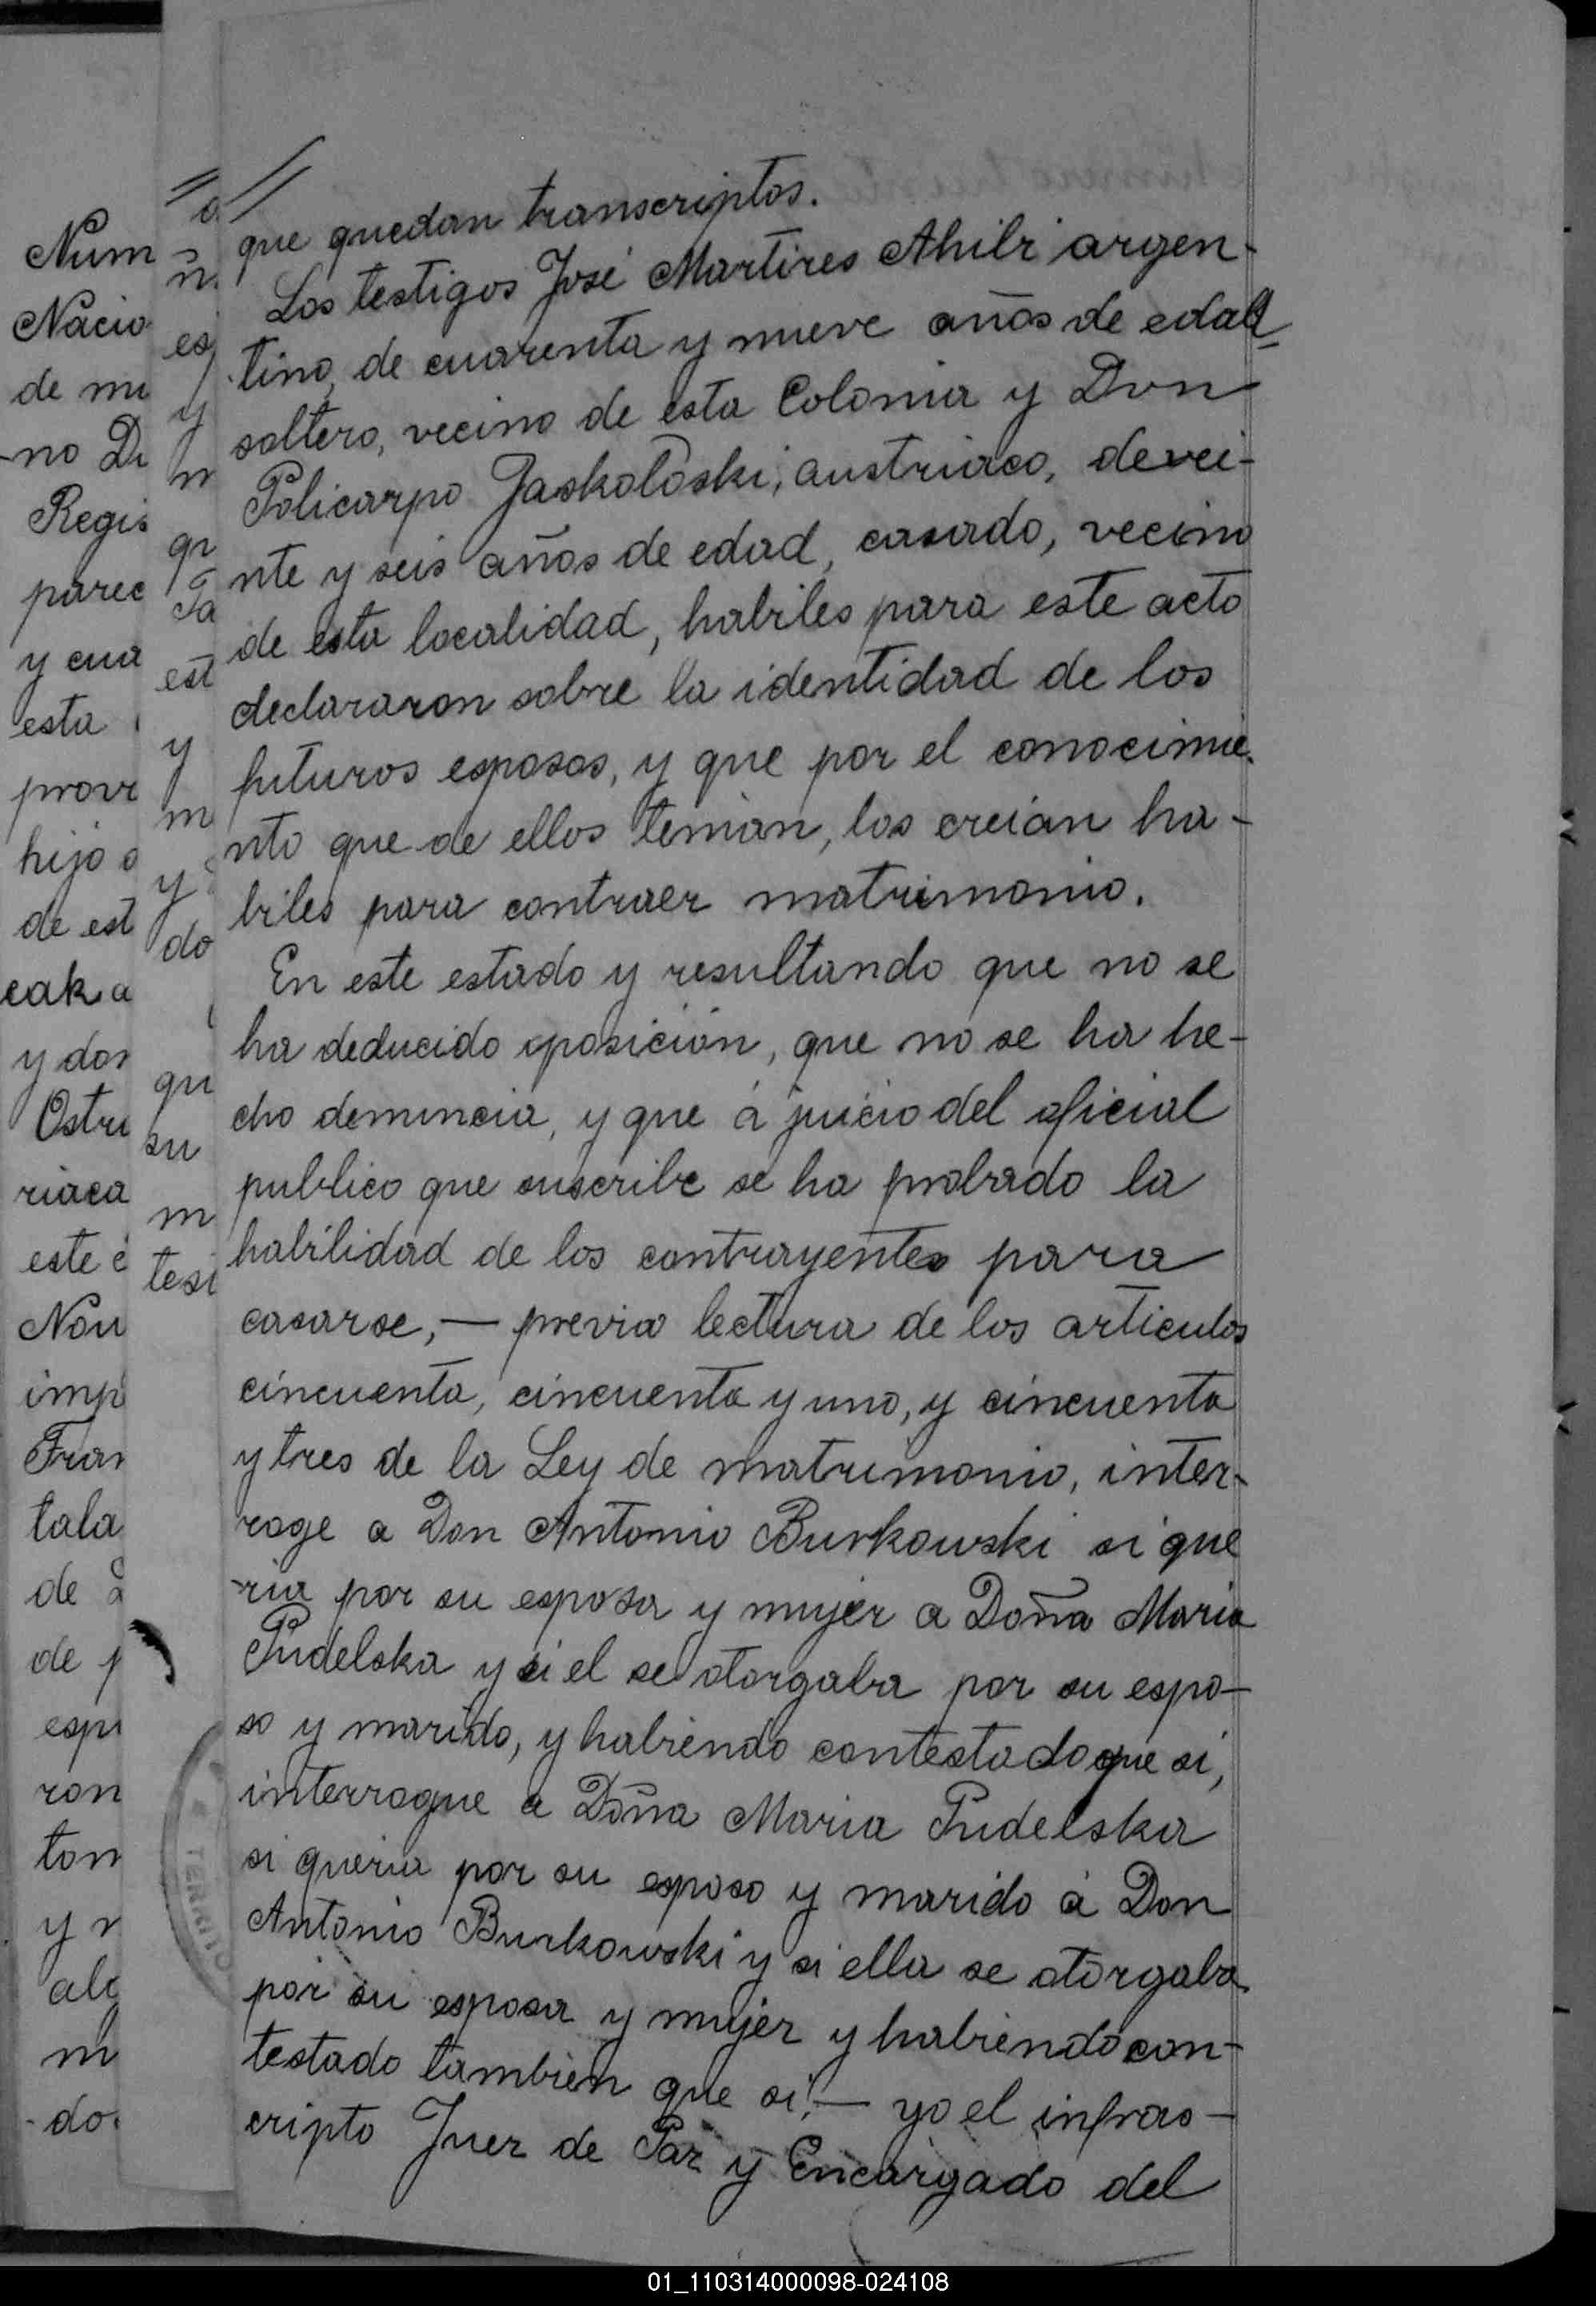 que quedan transcriptos.
Los testigos José Martires Ahilr argen-
tino, de cuarenta y nueve años de edad,
soltero, vecino de esta Colonia y Don
Policarpo Jaskoloski, austriaco, de vei-
nte y seis años de edad, casado, vecino
de esta localidad, habiles para este acto
declararon sobre la identidad de los
futuros esposos, y que por el conocimie-
nto que de ellos tenian, los creian ha-
biles para contraer matrimonio.
En este estado y resultando que no se
ha deducido oposición, que no se ha he-
cho denuncia, y que á juicio del oficial
publico que suscribe se ha probado la
habilidad de los contrayentes para
casarse,— previa lectura de los articulos
cincuenta, cincuenta y uno, y cincuenta
y tres de la Ley de matrimonio, inter-
roge a Don Antonio Burkowski si que
-ria por su esposa y mujer a Doña Maria
Pudelska y si el se otorgaba por su espo-
so y marido, y habiendo contestado que si,
interrogue a Doña Maria Pudelska
si queria por su esposo y marido á Don
Antonio Burkowski y si ella se otorgaba
por su esposa y mujer y habiendo con-
testado tambien que si,— yo el infras-
cripto Juez de Paz y Encargado del
Num
Nacio
de mi
-no D
Regis
parec
y cua
esta
prov
hijo
de est
cak a
y dos
Ostr
riaca
este
Non
imp
Fran
tala
de
de
esp
ron
ton
y
alg
m
do
n
es
y
n
qu
Ta
est
y
m
y
do
qu
su
m
tesi
TERRITO
01_110314000098-024108